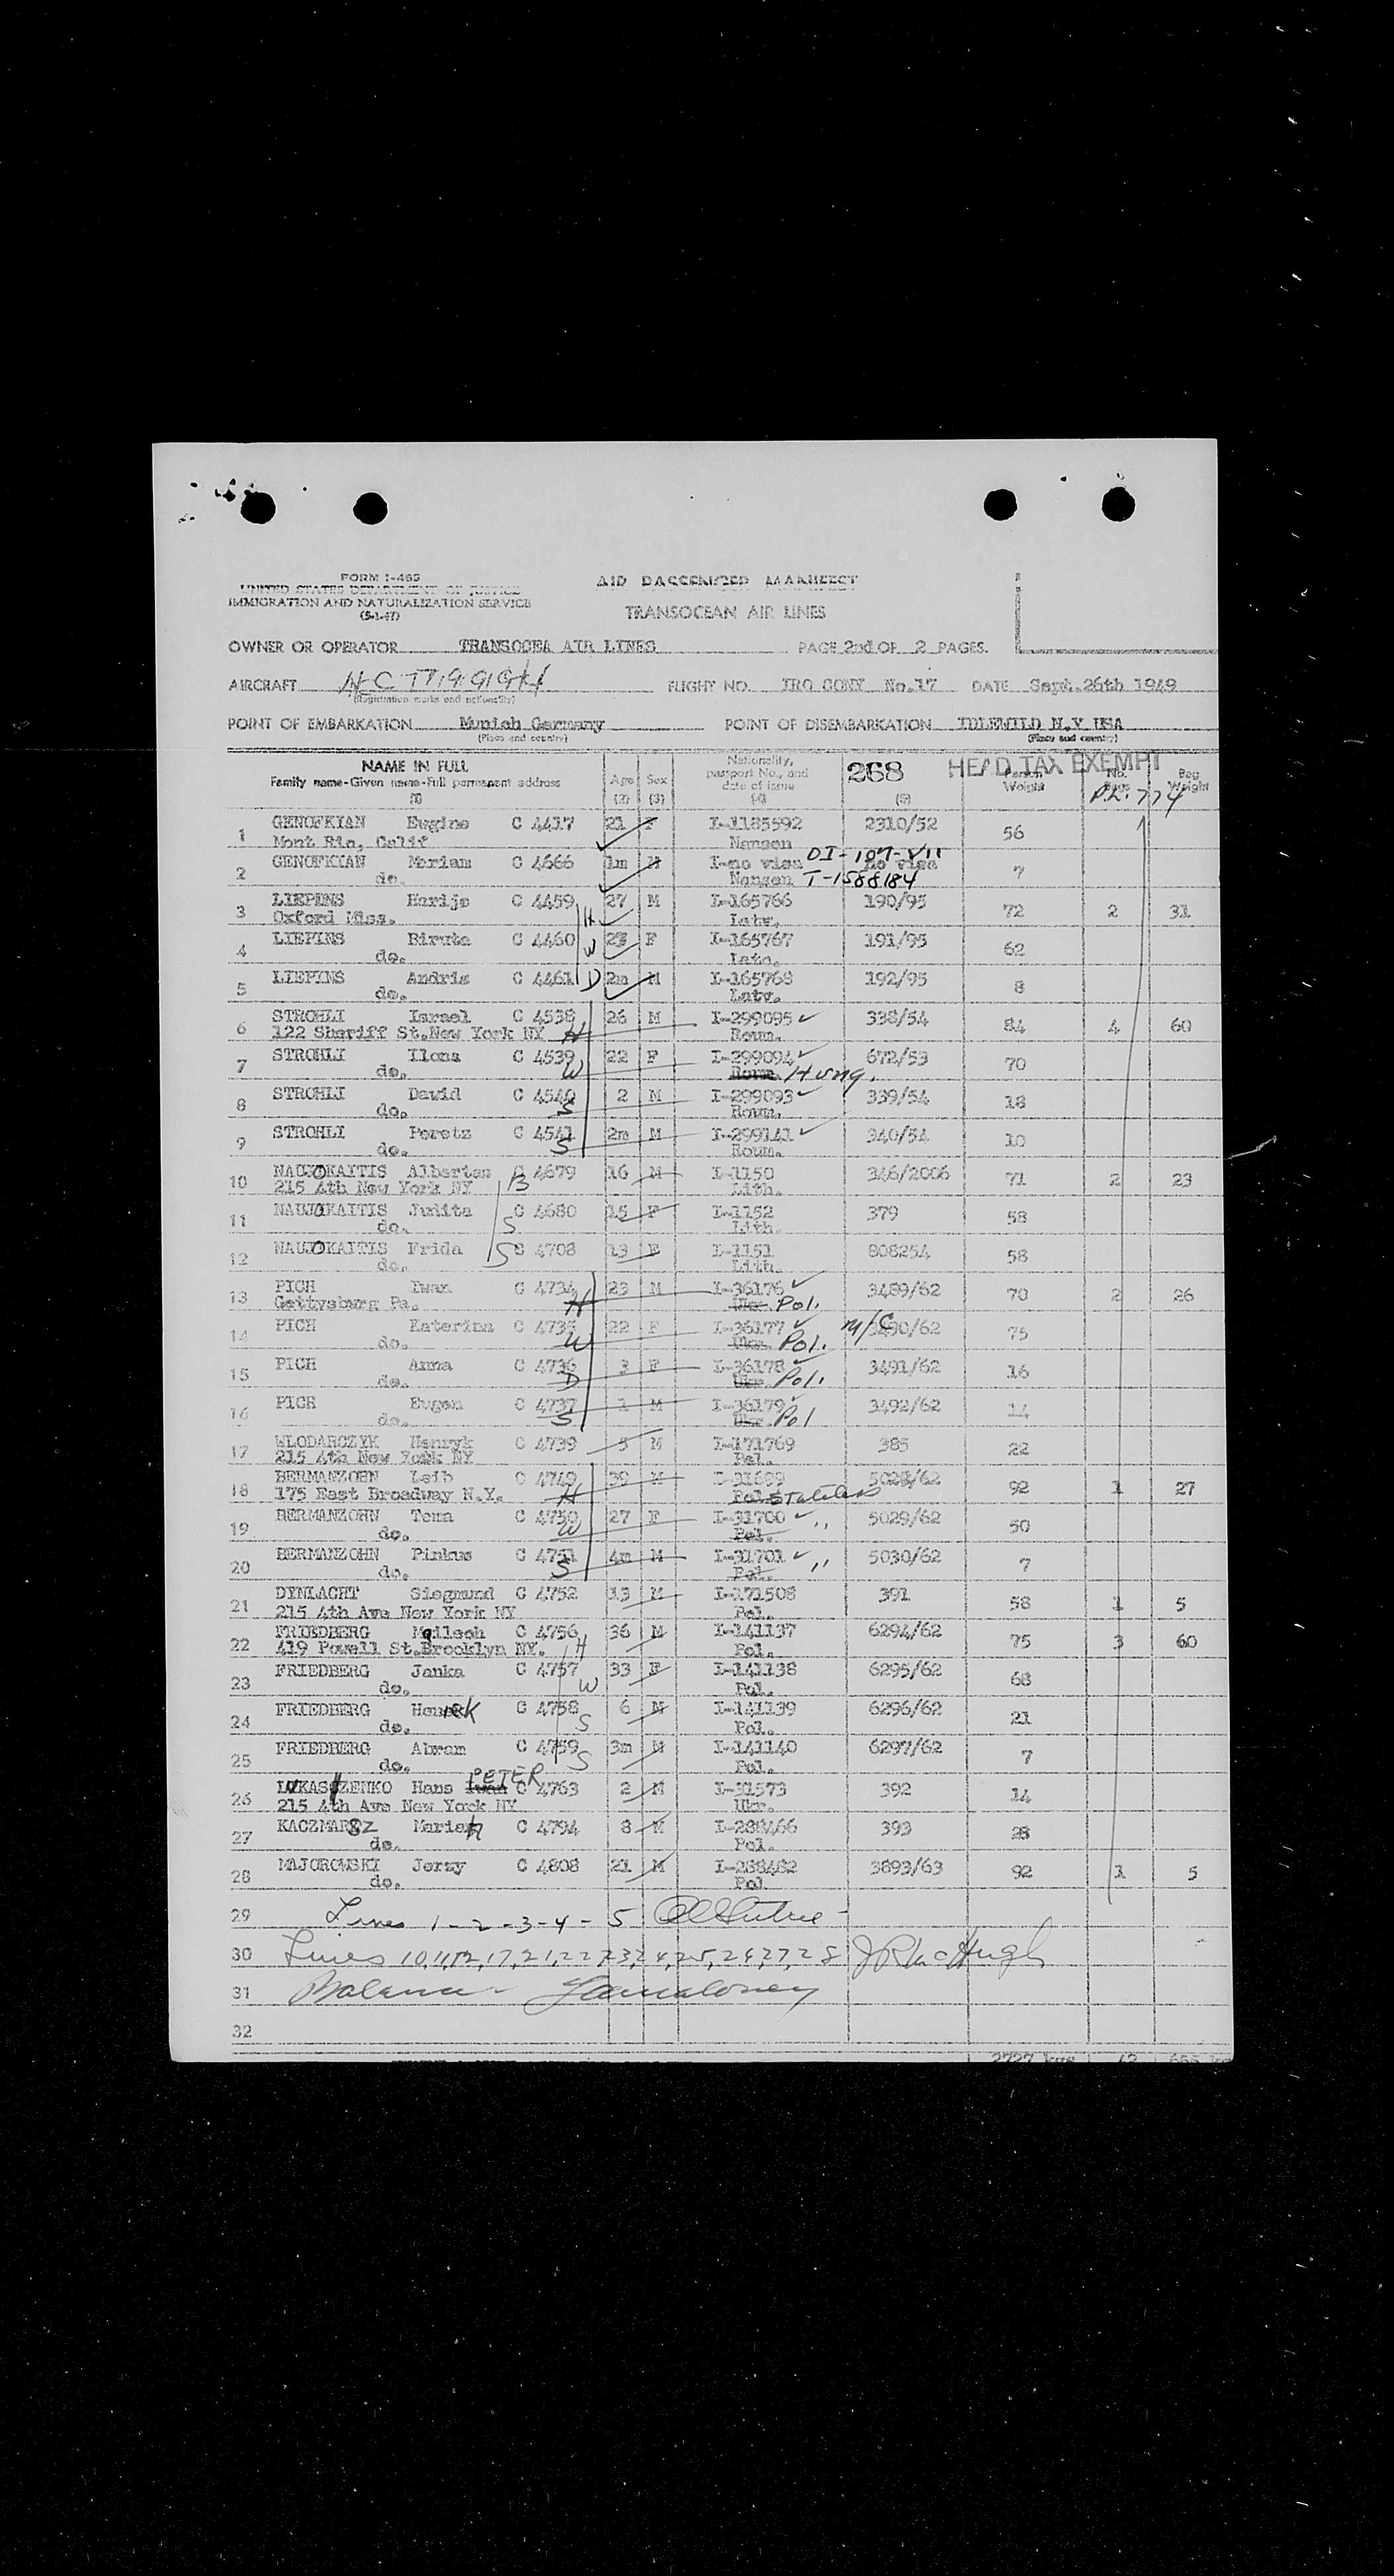 FORM I-465
UNITED STATES DEPARTMENT OF JUSTICE
IMMIGRATION AND NATURALIZATION SERVICE
(5-1-47)
AIR PASSENGER MANIFEST
TRANSOCEAN AIR LINES
OWNER OR OPERATOR TRANSOCEA AIR LINES PAGE 2nd OF 2 PAGES.
AIRCRAFT FLIGHT NO. IRO CONY No.17 DATE Sept.26th 1949
(Registration marks and nationality)
POINT OF EMBARKATION Munich Germany POINT OF DISEMBARKATION IDLEWILD N.Y USA
(Place and country) (Place and country)
NAME IN FULL Age Sex Nationality, passport No., and date of issue 268 HEAD TAX EXEMPT Person Weight No. Bags Bag Weight
Family name-Given name-Full permanent address
(1) (2) (3) (4) (5) P.L. 774
1 GENOFKIAN Eugine C 4417 21 F I-1185592 2310/52 56
Mont Rio, Calif Nansen
2 GENOFKIAN Meriam C 4666 1m M I-no visa DI-107-VII no visa 7
do. Nansen T-1588184
3 LIEPINS Harijs C 4459 H 27 M I-165766 190/95 72 2 31
Oxford Miss. Latv.
4 LIEPINS Biruta C 4460 W 23 F I-165767 191/95 62
do. Latv.
5 LIEPINS Andris C 4461 D 2m M I-165768 192/95 8
do. Latv.
6 STROHLI Israel C 4538 26 M I-299095 338/54 84 4 60
122 Sheriff St.New York NY H Roum.
7 STROHLI Ilona C 4539 22 F I-299094 672/53 70
do. W Roum. Hung.
8 STROHLI David C 4540 2 M I-299093 339/54 18
do. S Roum.
9 STROHLI Peretz C 4541 2m M I-299141 340/54 10
do. S Roum.
10 NAUJOKAITIS Albertas C 4679 16 M I-1150 346/2006 71 2 23
215 4th New York NY B Lith.
11 NAUJOKAITIS Judita C 4680 15 F I-1152 379 58
do. S Lith.
12 NAUJOKAITIS Frida C 4708 13 F I-1151 808254 58
do. S Lith.
13 PICH Iwan C 4734 23 M I-36176 3489/62 70 2 26
Gettysburg Pa. H Ukr. Pol.
14 PICH Katerina C 4735 22 F I-36177 M/C 3490/62 75
do. W Ukr. Pol.
15 PICH Anna C 4736 3 F I-36178 3491/62 16
do. D Ukr. Pol.
16 PICH Eugen C 4737 1 M I-36179 3492/62 14
do. S Ukr. Pol
17 WLODARCZYK Henryk C 4739 5 M I-171769 385 22
215 4th New York NY Pol.
18 BERMANZOHN Leib C 4749 39 M I-31699 5028/62 92 1 27
175 East Broadway N.Y. H Pol. Stateless
19 BERMANZOHN Tema C 4750 27 F I-31700 " 5029/62 50
do. W Pol.
20 BERMANZOHN Pinkus C 4751 4m M I-31701 " 5030/62 7
do. S Pol.
21 DYNLACHT Siegmund C 4752 13 M I-171508 391 58 1 5
215 4th Ave New York NY Pol.
22 FRIEDBERG Mailech C 4756 36 M I-141137 6294/62 75 3 60
419 Powell St.Brooklyn NY. H Pol.
23 FRIEDBERG Janka C 4757 33 F I-141138 6295/62 68
do. W Pol.
24 FRIEDBERG Henrek C 4758 6 M I-141139 6296/62 21
do. S Pol.
25 FRIEDBERG Abram C 4759 3m M I-141140 6297/62 7
do. S Pol.
PETER
26 LUKASZENKO Hans Iwan C 4763 2 M I-31573 392 14
215 4th Ave New York NY Ukr.
27 KACZMARSZ Marian C 4794 8 M I-288466 393 28
do. Pol.
28 MAJOROWSKI Jerzy C 4808 21 M I-288482 3893/63 92 1 5
do. Pol
29 Lines 1-2-3-4-5
30 Lines 10,11,12,17,21,22,23,24,25,26,27,28 J R McHugh
31 Balance
32
2727 kgs